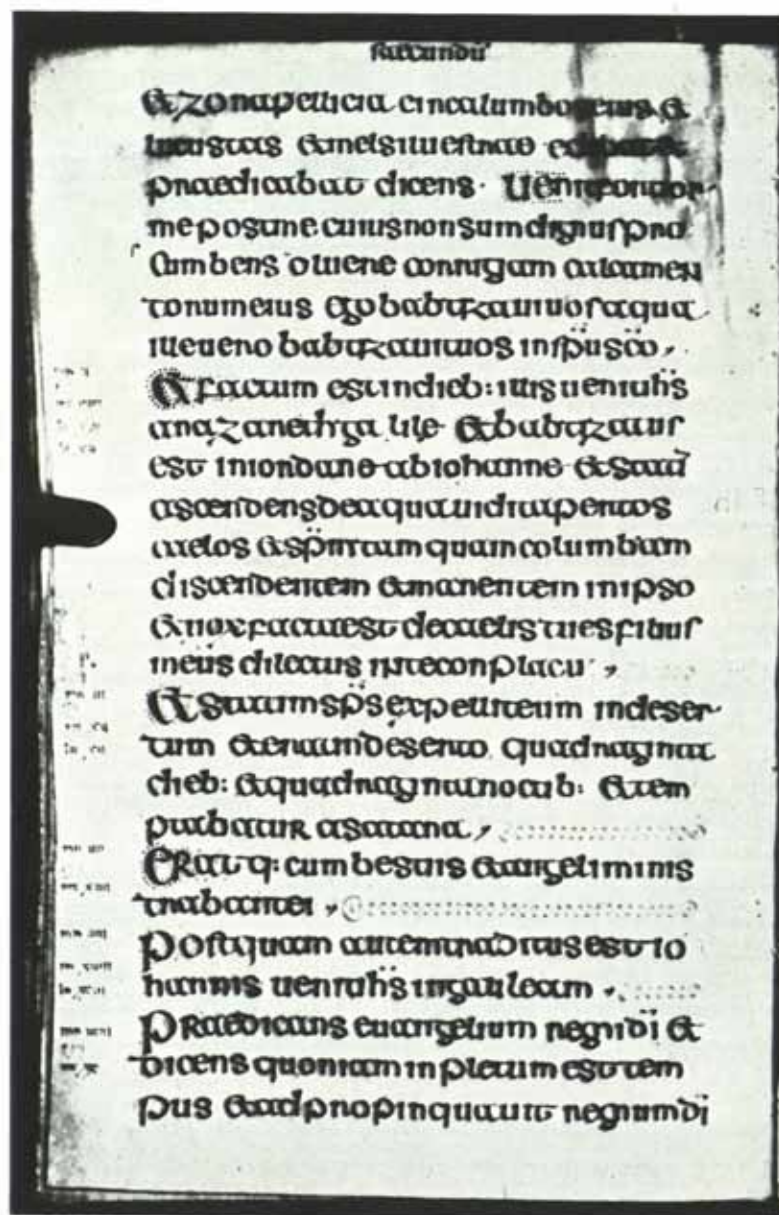 secundū
& zona pellicia cincta lumbos eius &
lucustas & mel siluestrae edebat &
praedicabat dicens· Uenit fortior
me post me cuius non sum dignus pro
cumbens soluere corrigam calciamen
torum eius ego babtizaui uos aqua
ille uero babtizauit uos in spu sco,
& factum est in dieb: illis uenit ihs
a nazareth galileae & babtizatus
est in iordane ab iohanne & statī
ascendens de aqua uidit apertos
caelos & spm tamquam columbam
discendentem & manentem in ipso
& uox facta est de caelis tu es filius
meus dilectus in te conplacui,
& statim sps expellit eum in deser
tum & erat in deserto quadraginta
dieb: & quadraginta noctib: & tem
ptabatur a satana,
Eratq: cum bestiis & angeli minis
trabant ei,
Postquam autem traditus est io
hannis uenit ihs in galileam,
Praedicans euangelium regni di &
dicens quoniam inpletum est tem
pus & adpropinquauit regnum di